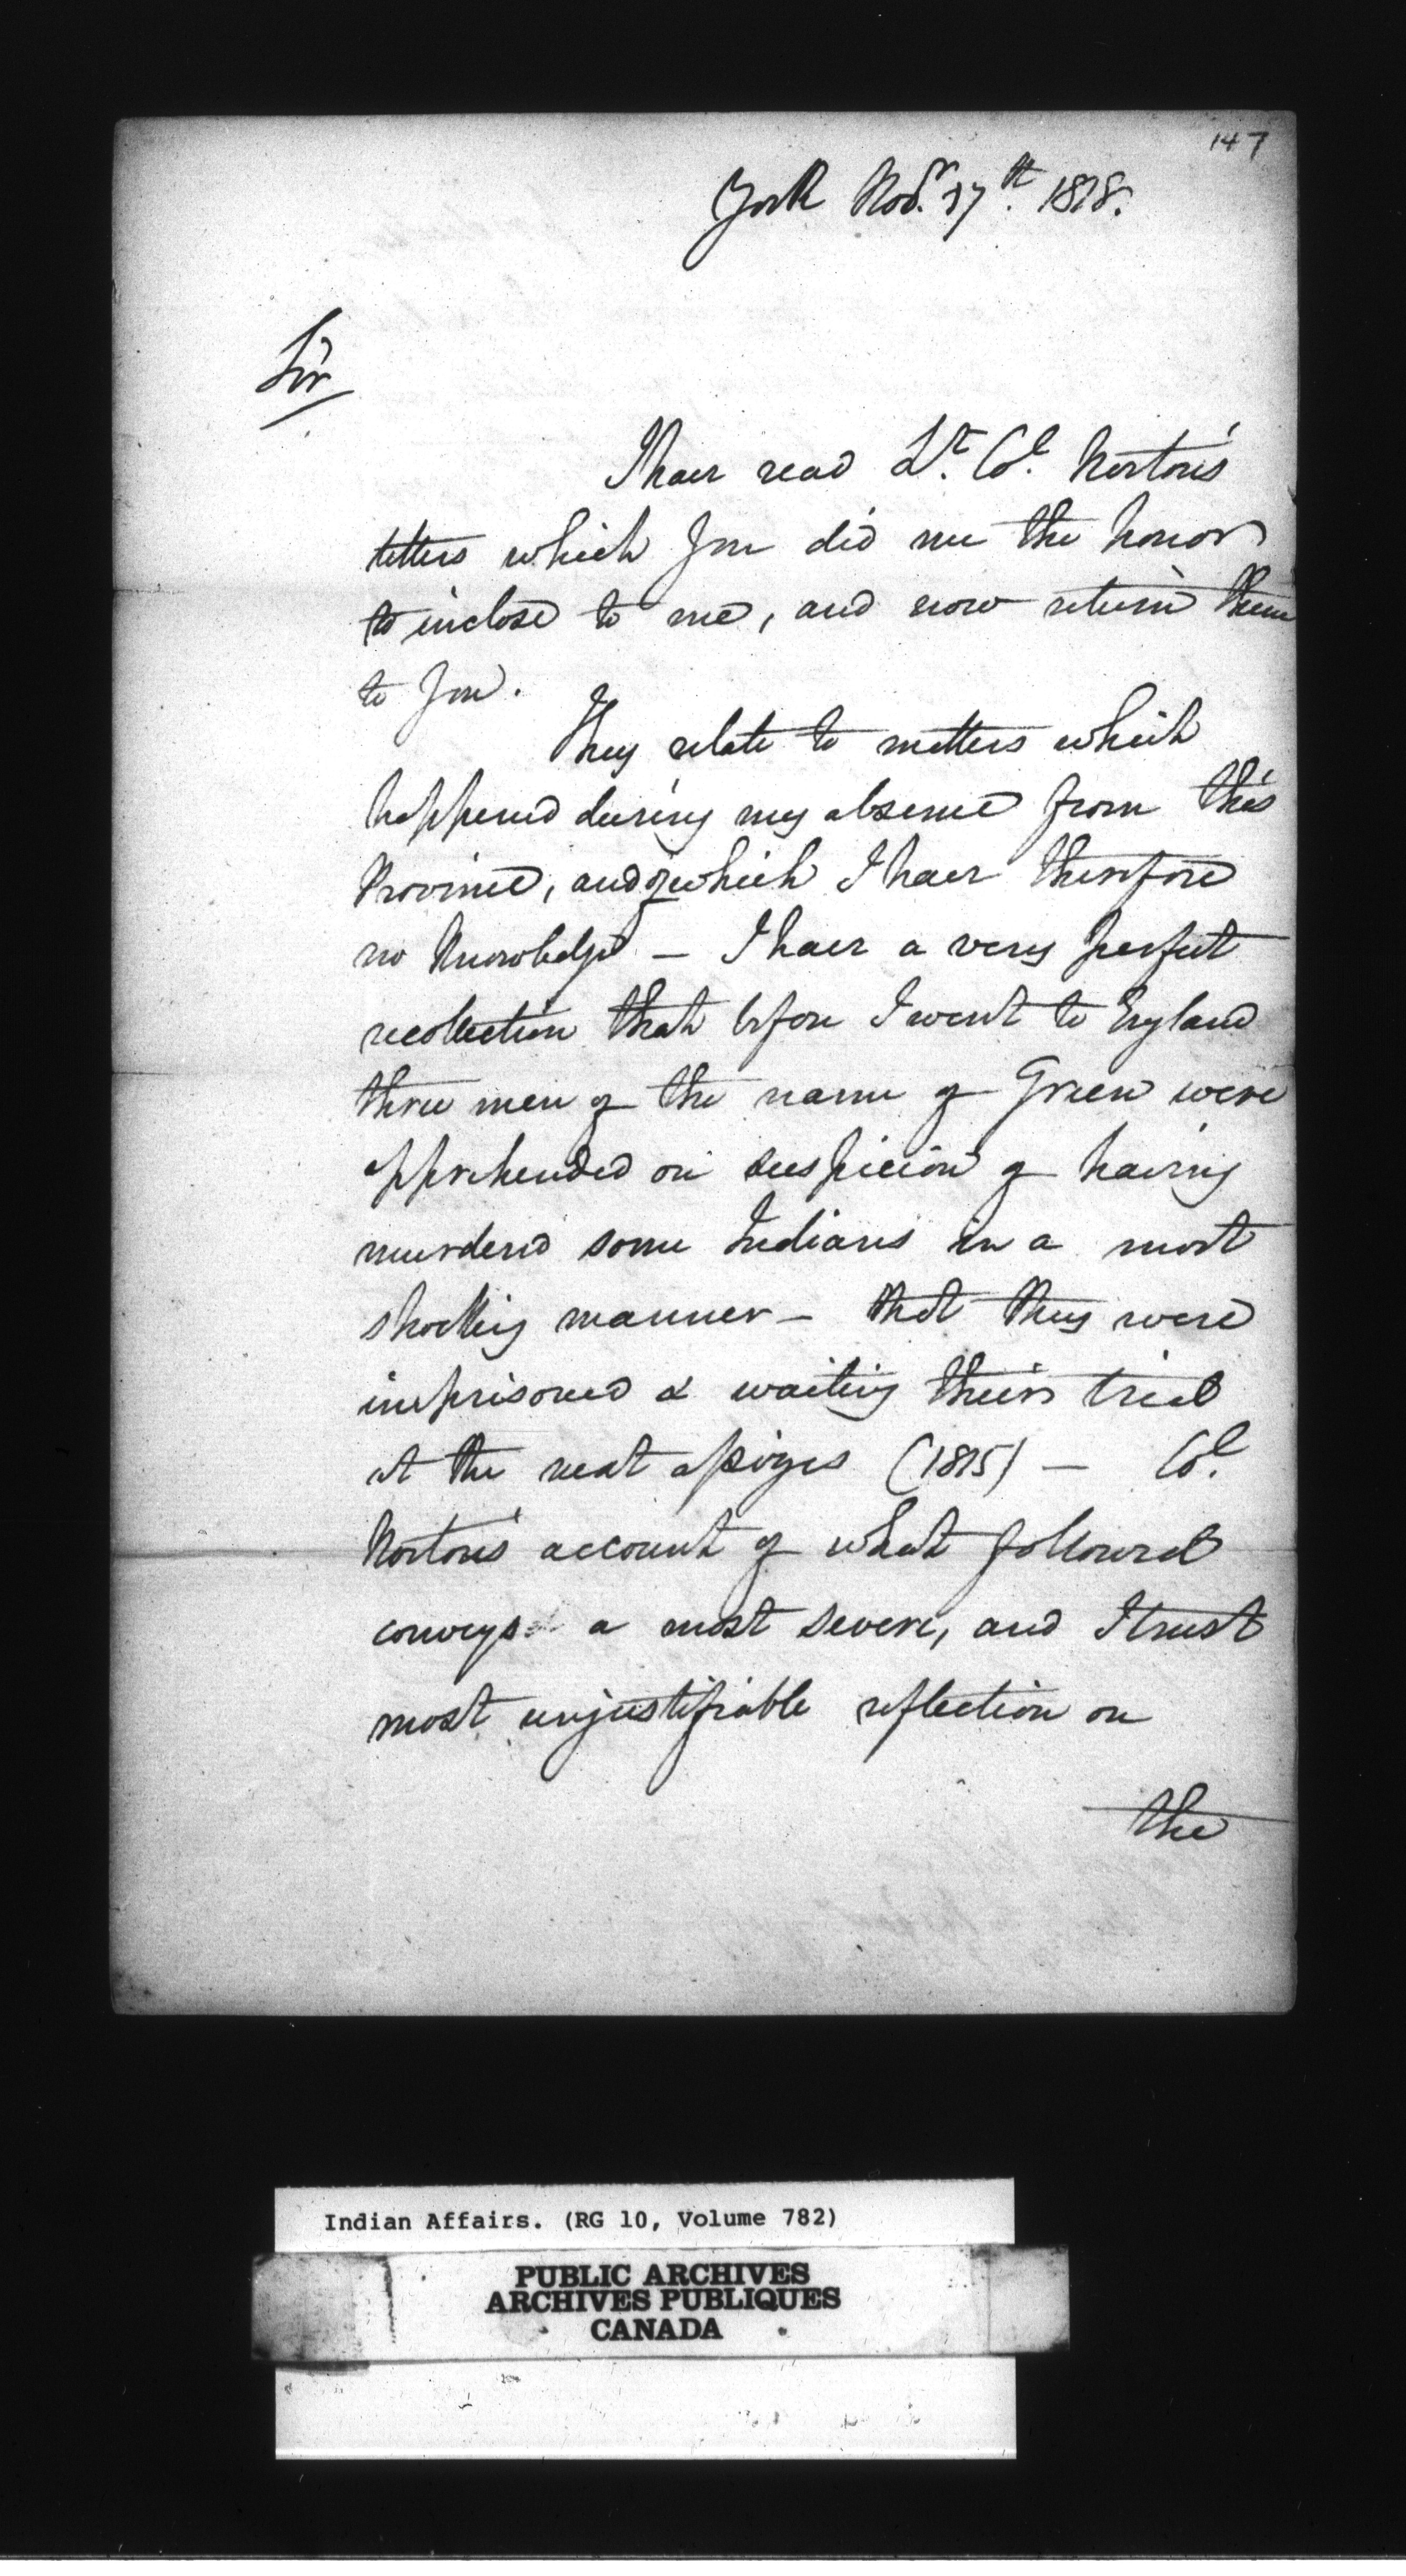 147
York Nov.r 17th. 1818.
Sir
I have read Lt. Col. Norton's
letters which you did me the honor
to inclose to me, and now return them
to you.
They relate to matters which
happened during my absence from this
Province, and of which I have therefore
no knowledge — I have a very perfect
recollection that before I went to England
three men of the name of Green were
apprehended on suspicion of having
murdered some Indians in a most
shocking manner — that they were
imprisoned & waiting their trial
at the next assizes (1815) — Col.
Norton's account of what followed
conveys a most severe, and I trust
most unjustifiable reflection on
the
Indian Affairs. (RG 10, Volume 782)
PUBLIC ARCHIVES
ARCHIVES PUBLIQUES
CANADA